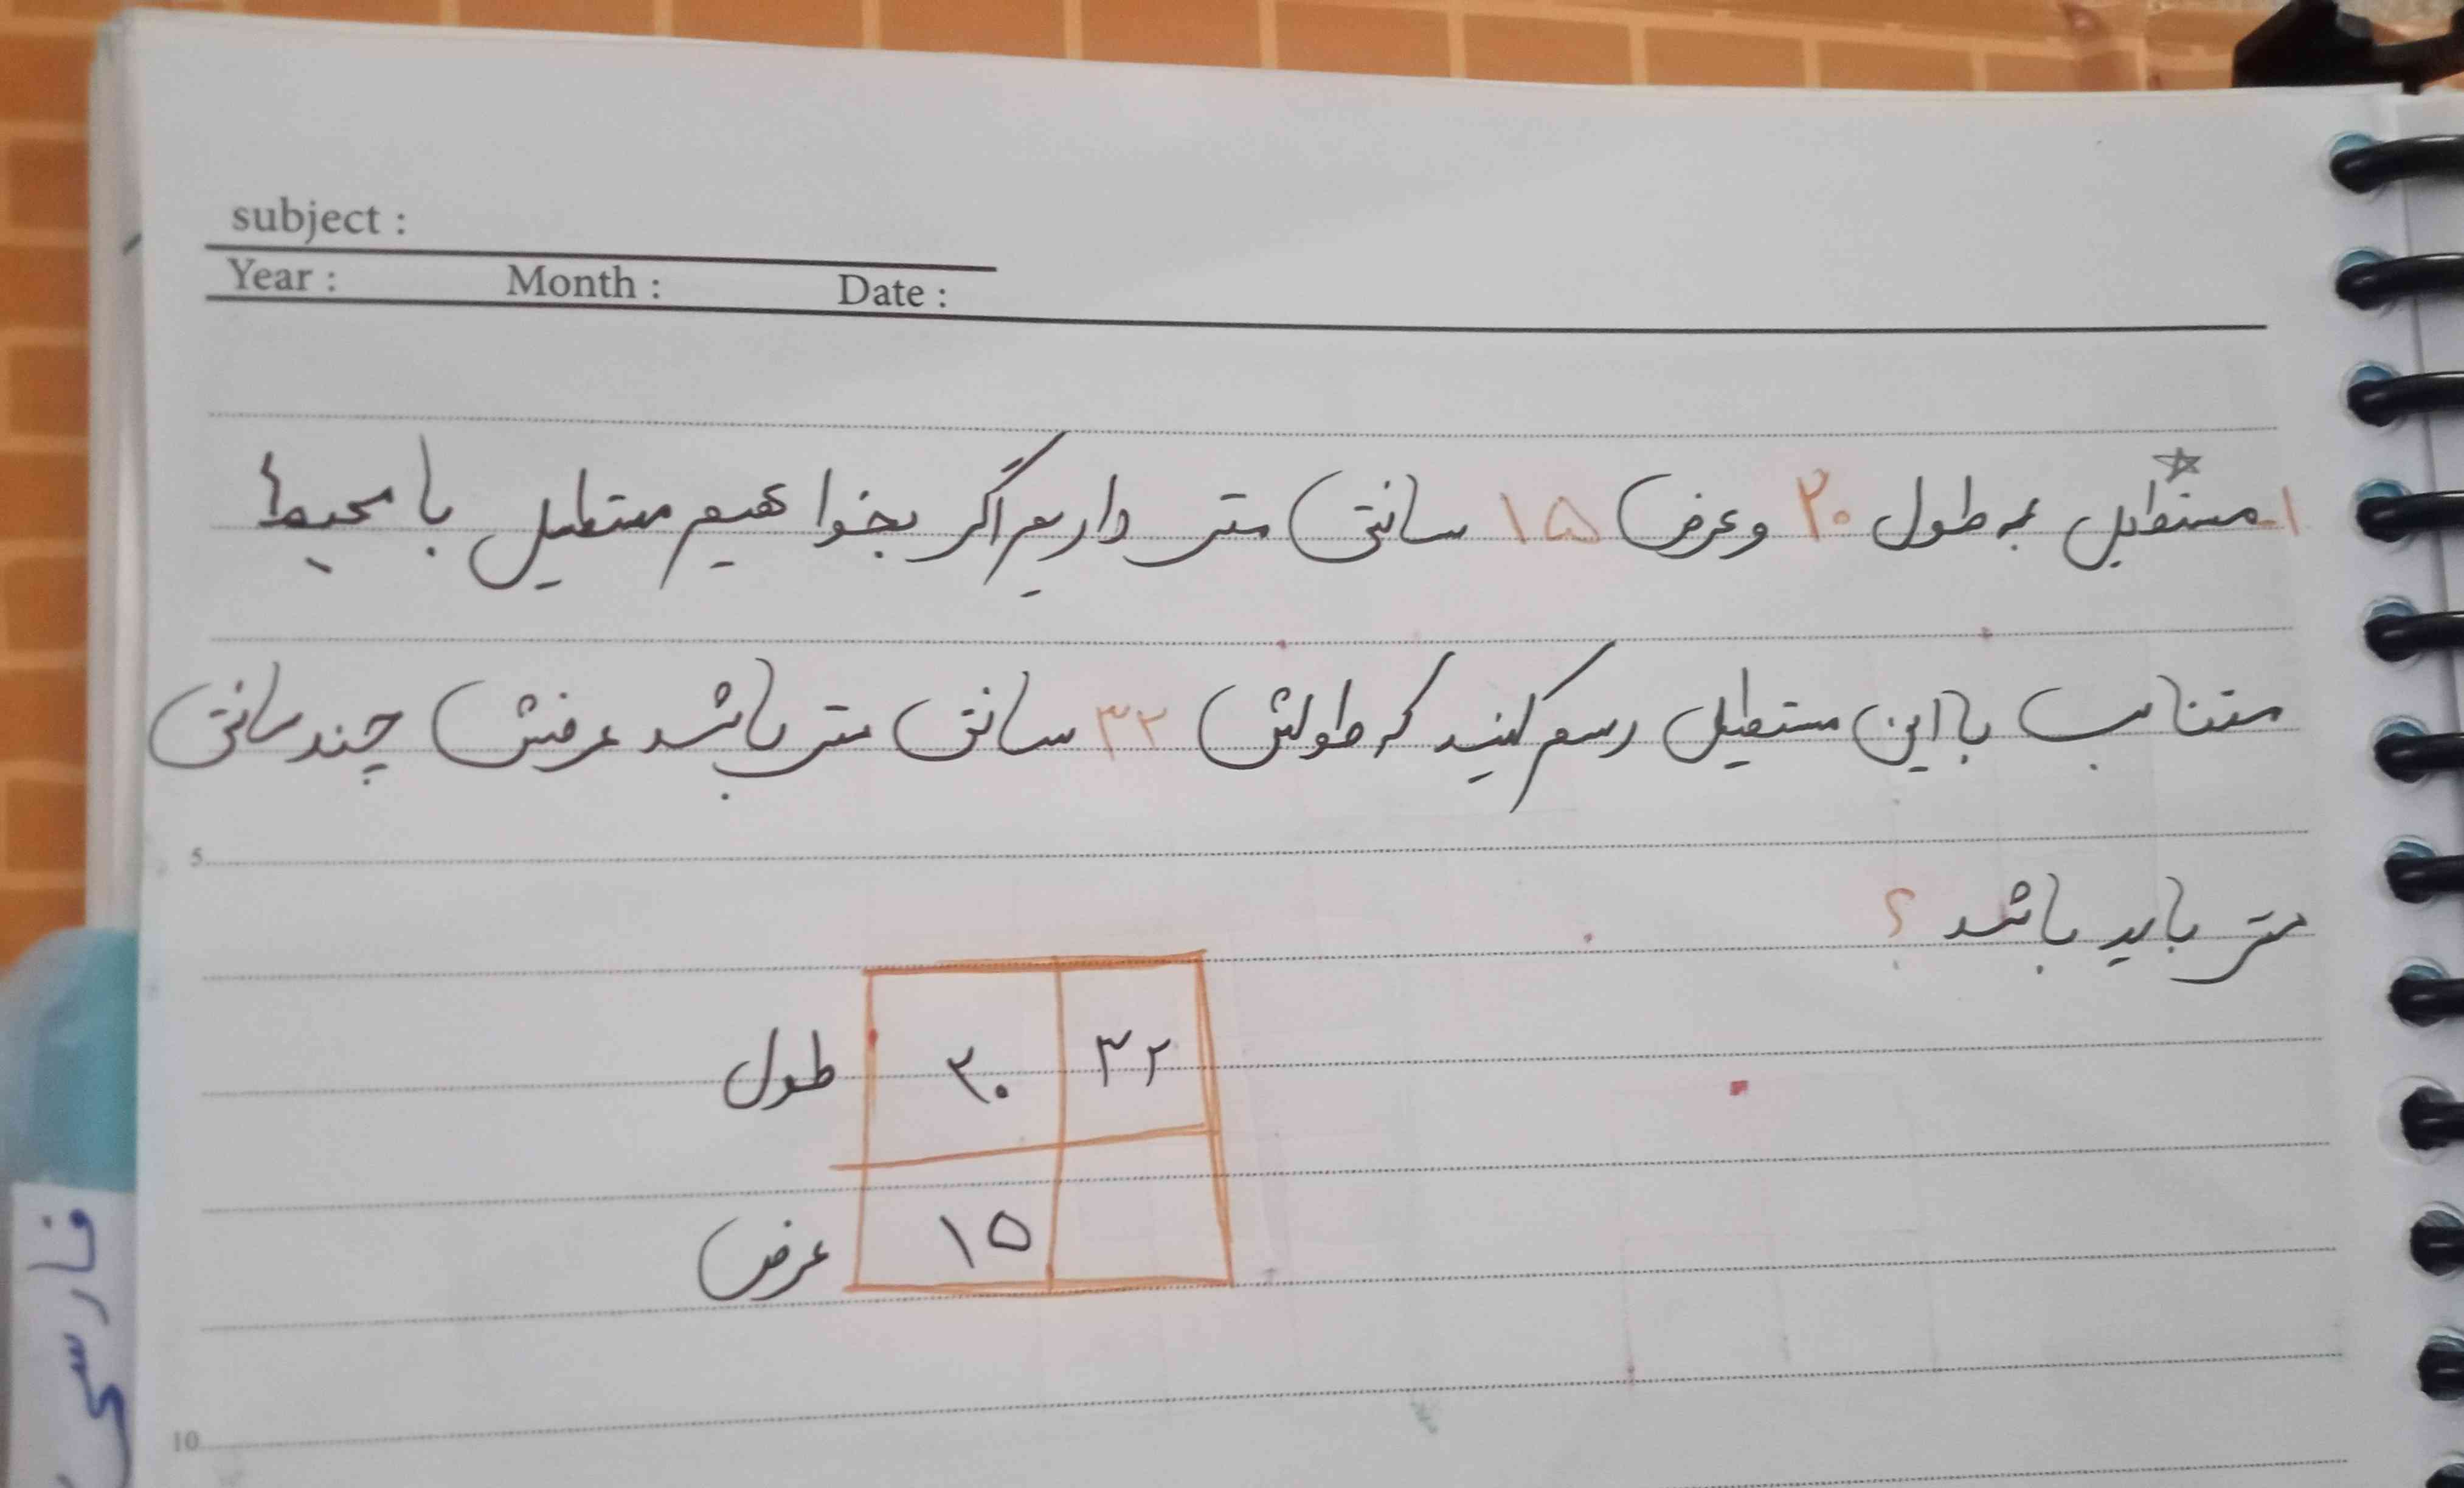 subject :
Year : Month : Date :
۱- مستطیل به طول ۲۰ و عرض ۱۵ سانتی متر داریم اگر بخواهیم مستطیل با محیط
متناسب با این مستطیل رسم کنید که طولش ۳۲ سانتی متر باشد عرضش چند سانتی
5
متر باید باشد ؟
طول ۲۰ ۳۲
عرض ۱۵
10
فارسی